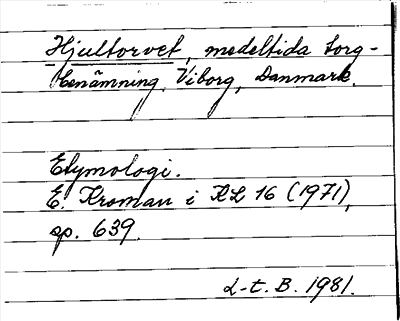 Hjultorvet, medeltida torg-
benämning, Viborg, Danmark.
Etymologi.
E. Kroman i KL 16 (1971),
sp. 639.
L-t. B. 1981.